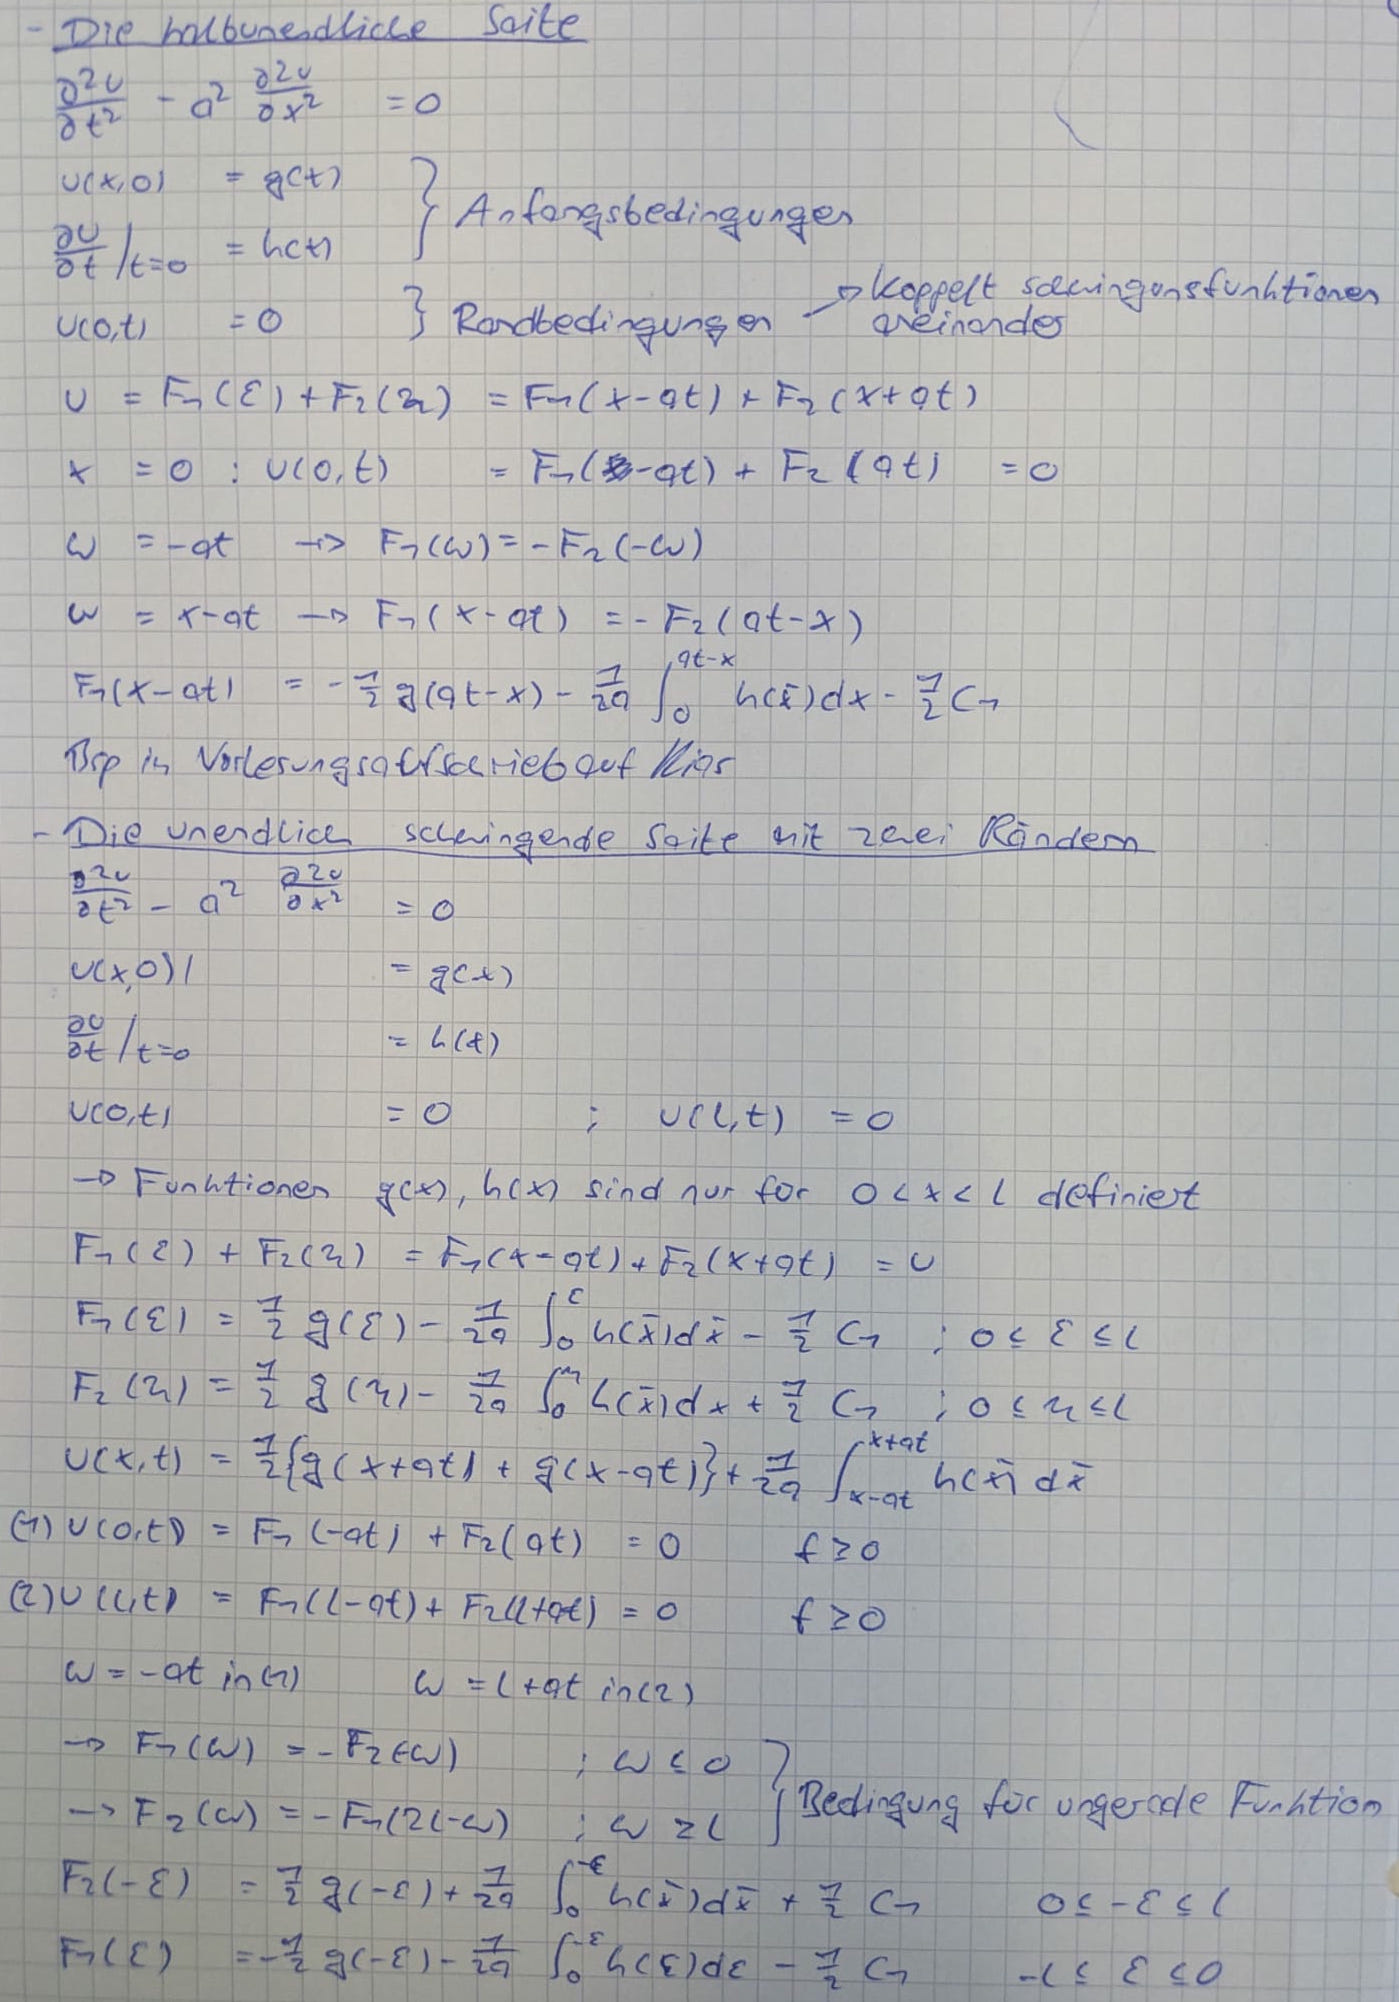 - Die halbunendliche Saite
∂²u/∂t² - a² ∂²u/∂x² = 0
u(x,0) = g(x) } Anfangsbedingungen
∂u/∂t /t=0 = h(x)
u(0,t) = 0 } Randbedingungen → koppelt schwingunsfunktionen aneinander
u = F₁(ε) + F₂(η) = F₁(x-at) + F₂(x+at)
x = 0 : u(0,t) = F₁(-at) + F₂(at) = 0
ω = -at → F₁(ω) = -F₂(-ω)
ω = x-at → F₁(x-at) = -F₂(at-x)
F₁(x-at) = -1/2 g(at-x) - 1/2a ∫₀^(at-x) h(x̄)dx - 1/2 C₁
Bsp in Vorlesungsaufschrieb auf
- Die unendlich schwingende Saite mit zwei Rändern
∂²u/∂t² - a² ∂²u/∂x² = 0
u(x,0)| = g(x)
∂u/∂t /t=0 = h(x)
u(0,t) = 0 ; u(l,t) = 0
→ Funktionen g(x), h(x) sind nur für 0 < x < l definiert
F₁(ε) + F₂(η) = F₁(x-at) + F₂(x+at) = u
F₁(ε) = 1/2 g(ε) - 1/2a ∫₀^ε h(x̄)dx̄ - 1/2 C₁ ; 0 ≤ ε ≤ l
F₂(η) = 1/2 g(η) - 1/2a ∫₀^η h(x̄)dx + 1/2 C₁ ; 0 ≤ η ≤ l
u(x,t) = 1/2{g(x+at) + g(x-at)} + 1/2a ∫_(x-at)^(x+at) h(x̄) dx̄
(1) u(0,t) = F₁(-at) + F₂(at) = 0 t ≥ 0
(2) u(l,t) = F₁(l-at) + F₂(l+at) = 0 t ≥ 0
ω = -at in (1) ω = l+at in (2)
→ F₁(ω) = -F₂(-ω) ; ω ≤ 0 } Bedingung für ungerade Funktion
→ F₂(ω) = -F₁(2l-ω) ; ω ≥ l
F₂(-ε) = 1/2 g(-ε) + 1/2a ∫₀^(-ε) h(x̄)dx̄ + 1/2 C₁ 0 ≤ -ε ≤ l
F₁(ε) = -1/2 g(-ε) - 1/2a ∫₀^(-ε) h(ε)dε - 1/2 C₁ -l ≤ ε ≤ 0